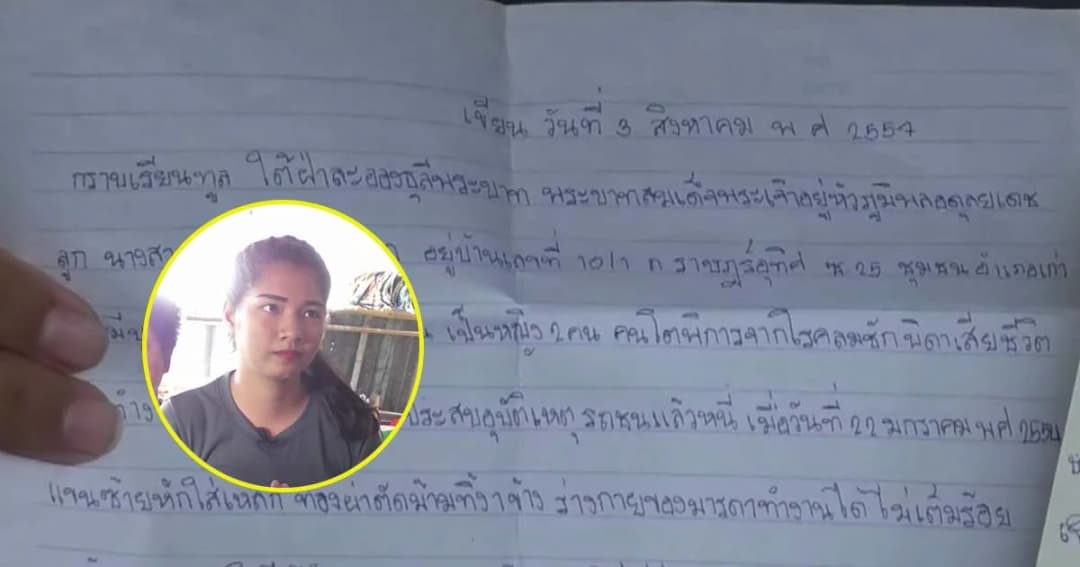 เขียน วันที่ 3 สิงหาคม พ ศ 2557
กราบเรียนทูล ใต้ฝ่าละอองธุลีพระบาท พระบาทสมเด็จพระเจ้าอยู่หัวภูมิพลอดุลยเดช
ลูก นางสา อยู่บ้านเลขที่ 10/1 ถ ราษฎร์อุทิศ ซ 25 ชุมชน อำเภอเก่า
เป็นหญิง 2 คน คนโตพิการจากโรคลมชัก บิดาเสียชีวิต
ประสบอุบัติเหตุ รถชนแล้วหนี เมื่อวันที่ 22 มกราคม พศ 2554
แขนซ้ายหักใส่เหล็ก ท้องผ่าตัดม้ามทิ้ง 1 ข้าง ร่างกายของมารดาทำงานได้ ไม่เต็มร้อย